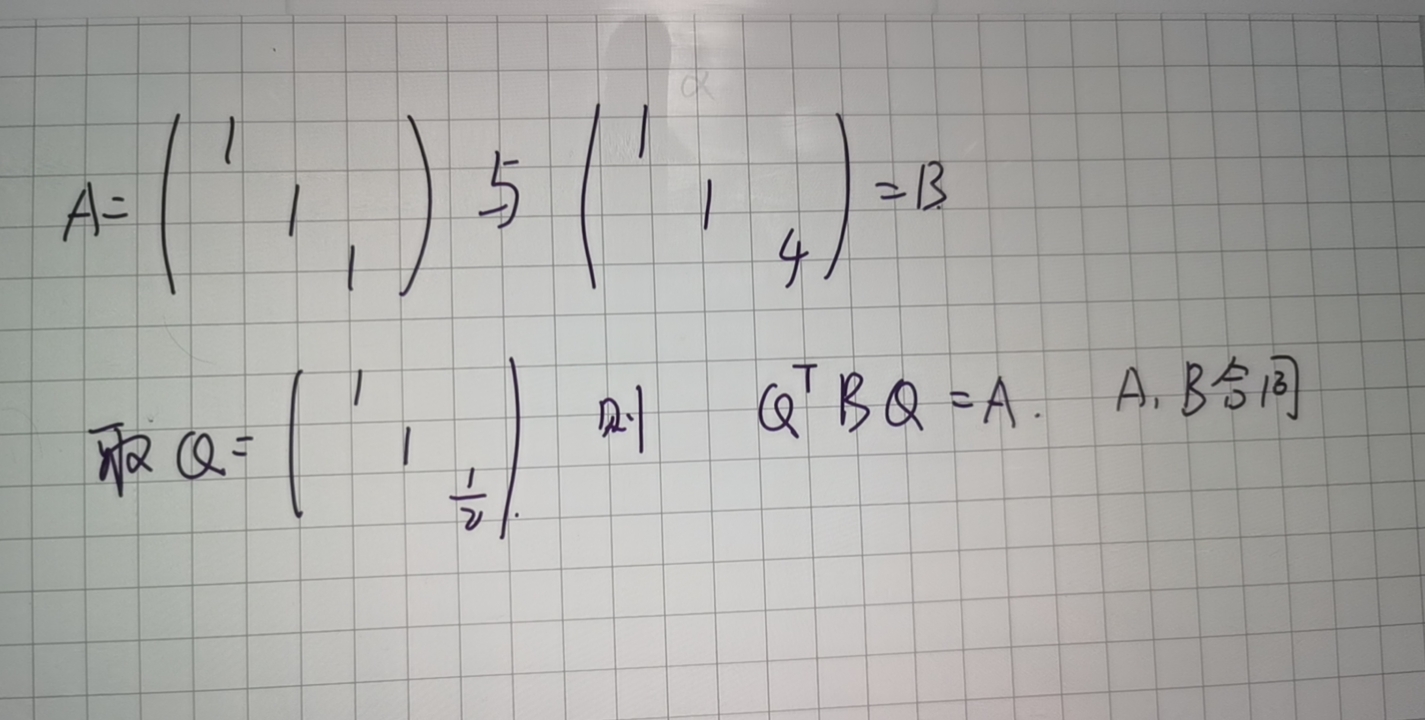 A = ( 1 1 1 ) 与 ( 1 1 4 ) = B.
取 Q = ( 1 1 1/2 ). 则 Q^T B Q = A. A, B合同